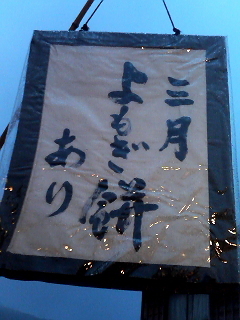 三月
よもぎ餅
あり